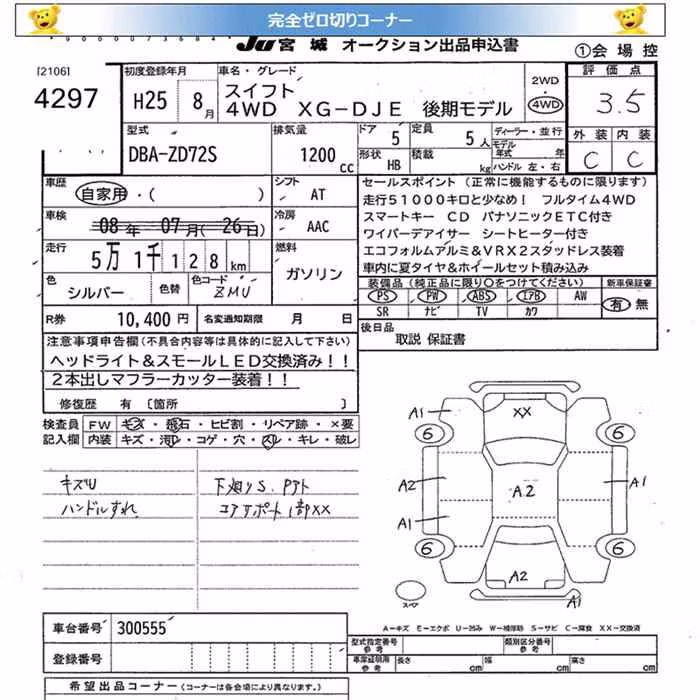 完全ゼロ切りコーナー
Ju 宮城 オークション出品申込書
①会場控
[2106]
4297
初度登録年月
H25 8月
車名・グレード
スイフト
4WD XG-DJE 後期モデル
2WD
・
4WD
評価点
3.5
外装 内装
C C
型式
DBA-ZD72S
排気量
1200cc
ドア 5
定員 5人
形状 HB
積載 kg
ディーラー・並行
モデル年式 年
ハンドル 左・右
車歴
自家用・( )
シフト
AT
車検
08年 07月(26日)
冷房
AAC
走行
5万1千128km
燃料
ガソリン
色
シルバー
色替
色コード
ZMU
R券 10,400円
名変通知期限 月 日
セールスポイント (正常に機能するものに限ります)
走行51000キロと少なめ! フルタイム4WD
スマートキー CD パナソニックETC付き
ワイパーデアイサー シートヒーター付き
エコフォルムアルミ&VRX2スタッドレス装着
車内に夏タイヤ&ホイールセット積み込み
装備品(純正品に限り○をつけてください)
PS PW ABS エアB AW
SR ナビ TV カワ
新車保証書
有・無
後日品
取説 保証書
注意事項申告欄(不具合内容等は具体的に記入して下さい)
ヘッドライト&スモールLED交換済み!!
2本出しマフラーカッター装着!!
修復歴 有 〔箇所 〕
検査員記入欄
FW キズ・飛石・ヒビ割・リペア跡・×要
内装 キズ・汚れ・コゲ・穴・スレ・キレ・破レ
キズU
ハンドルすれ
コアサポート1部XX
A1
XX
6
6
A2
A1
A2
A1
6
6
A2
A1
スペア
A-キズ E-エクボ U-凹み W-補修跡 S-サビ C-腐食 XX-交換済
車台番号 300555
登録番号
型式指定番号
参考
類別区分番号
参考
車庫証明用
参考
長さ cm
幅 cm
高さ cm
希望出品コーナー(コーナーは各会場により異なります。)